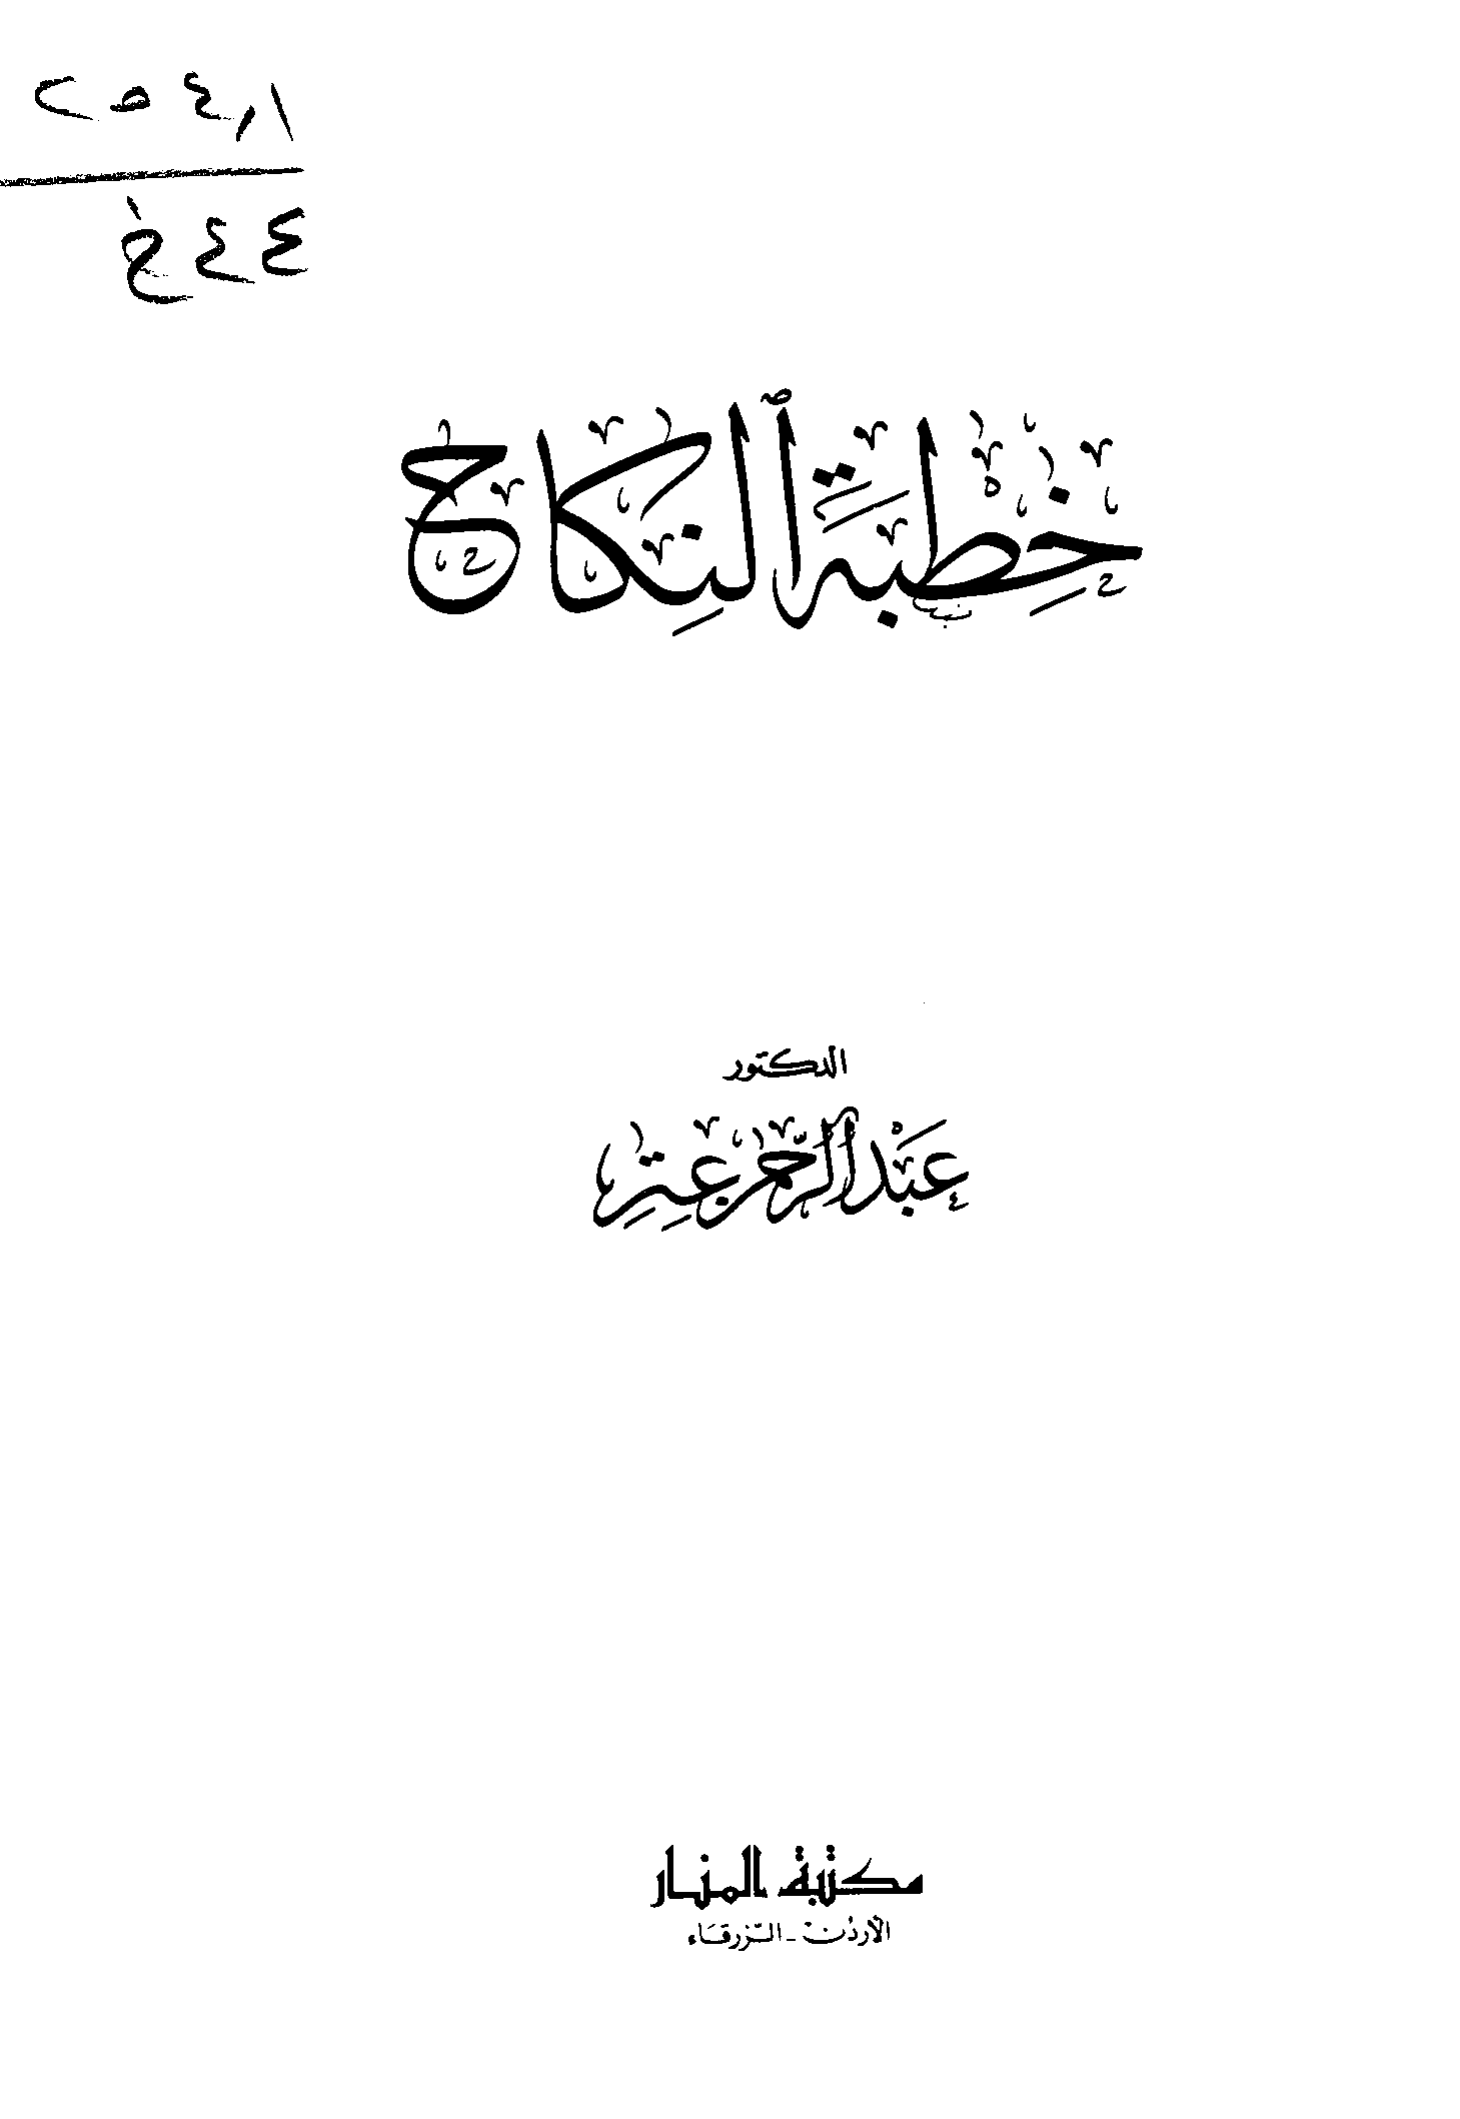 خِطْبَةُ ٱلنِّكَاحِ
الدكتور
عَبْد الرَّحمن عِتِر
مكتبة المنار
الأردن - الزرقاء